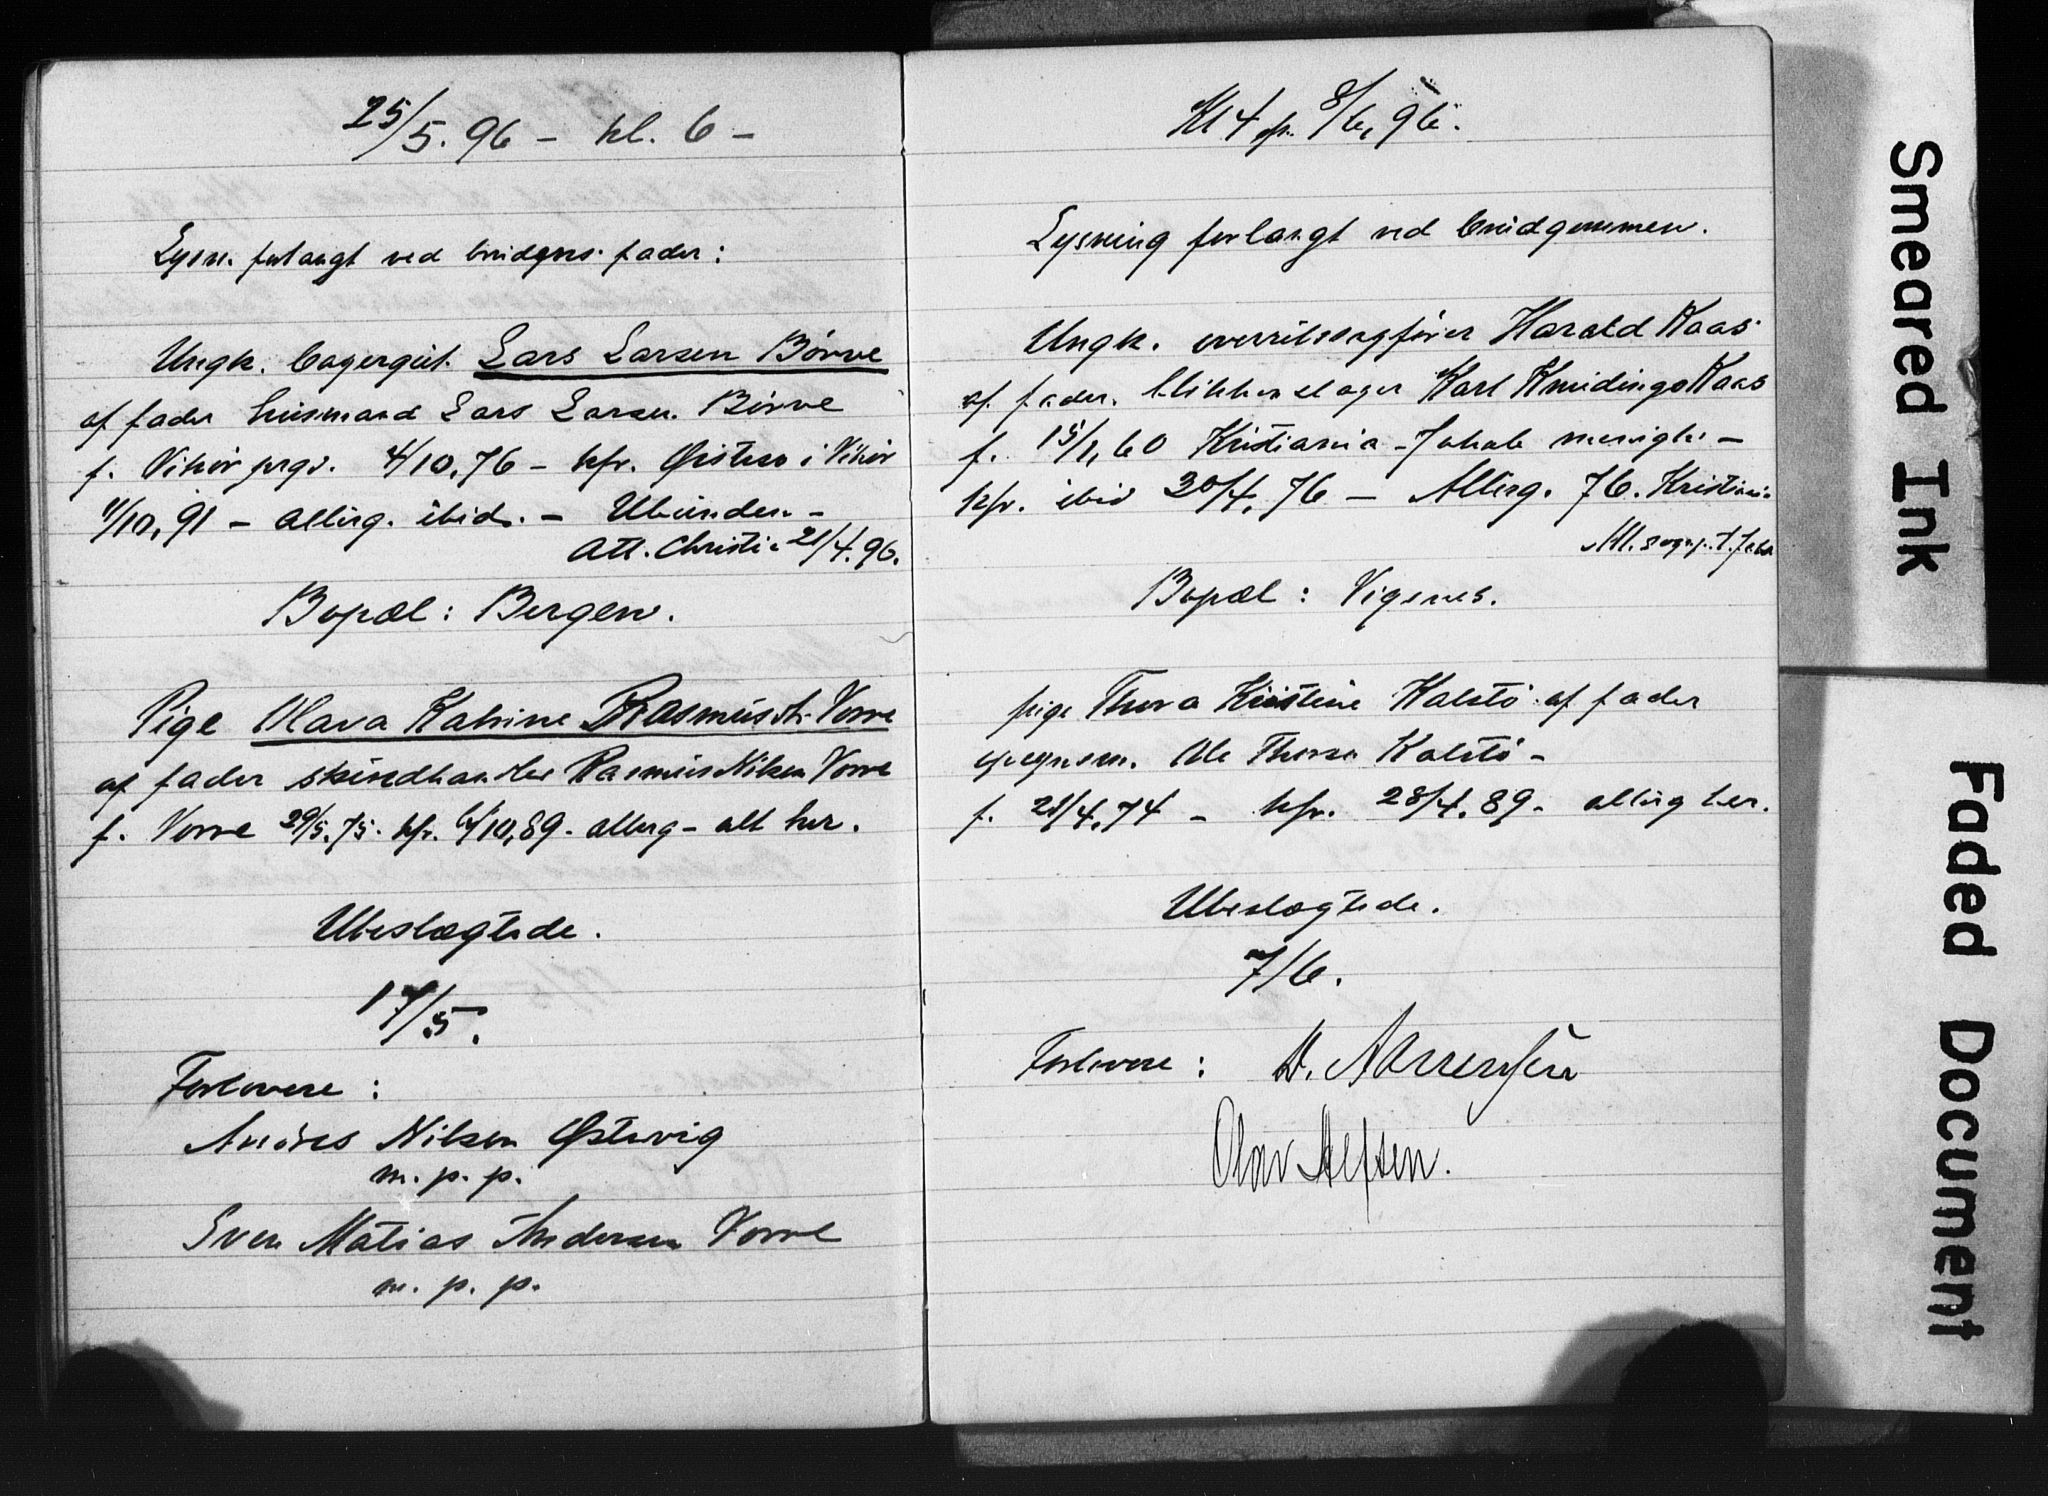 25/5.96 – kl. 6 –
Lysn. forlangt ved brudgms. fader:
Ungk. bagergut. Lars Larsen Børve
af fader husmand Lars Larsen Børve
f. Vikør prgj. 4/10,76 – kfr. Østese i Vikør
11/10,91 – alterg. ibid. – Ubunden –
Att. Christi. 21/4.96.
Bopæl: Bergen.
Pige Olava Katrine Rasmusdtr. Vorre
af fader skindhandler Rasmus Nilsen Vorre
f. Vorre 29/5.75. kfr. 6/10,89 – alterg – alt her.
Ubeslægtede.
17/5.
Forlovere:
Andres Nilsen Østevig
m. p. p.
Sven Matias Andersen Vorre
m. p. p.
Kl 4 8/6, 96.
Lysning forlangt ved brudgommen.
Ungk. overretssagfører Harald Kaas
af fader. blikkenslager Karl Knudinge Kaas
f. 15/1,60 Kristiania – Jakob menighe –
kfr. ibid 30/4,76 – Alterg. 76. Kristiania
Att. sognp. t. Jakob
Bopæl: Vigenes.
pige Thora Kristine Kalstø af fader
Ole Thorsen Kalstø –
f. 21/4,74 – kfr. 28/4,89 – alterg her.
Ubeslægtede.
7/6.
Forlovere:
Olav Alfsen.
Smeared Ink
Faded Document